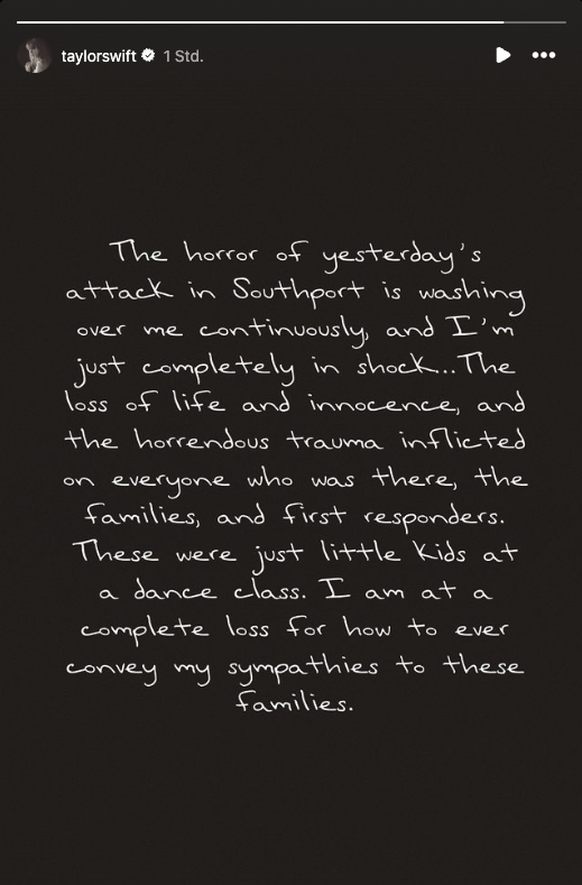 taylorswift 1 Std.
The horror of yesterday's
attack in Southport is washing
over me continuously, and I'm
just completely in shock...The
loss of life and innocence, and
the horrendous trauma inflicted
on everyone who was there, the
families, and first responders.
These were just little kids at
a dance class. I am at a
complete loss for how to ever
convey my sympathies to these
families.